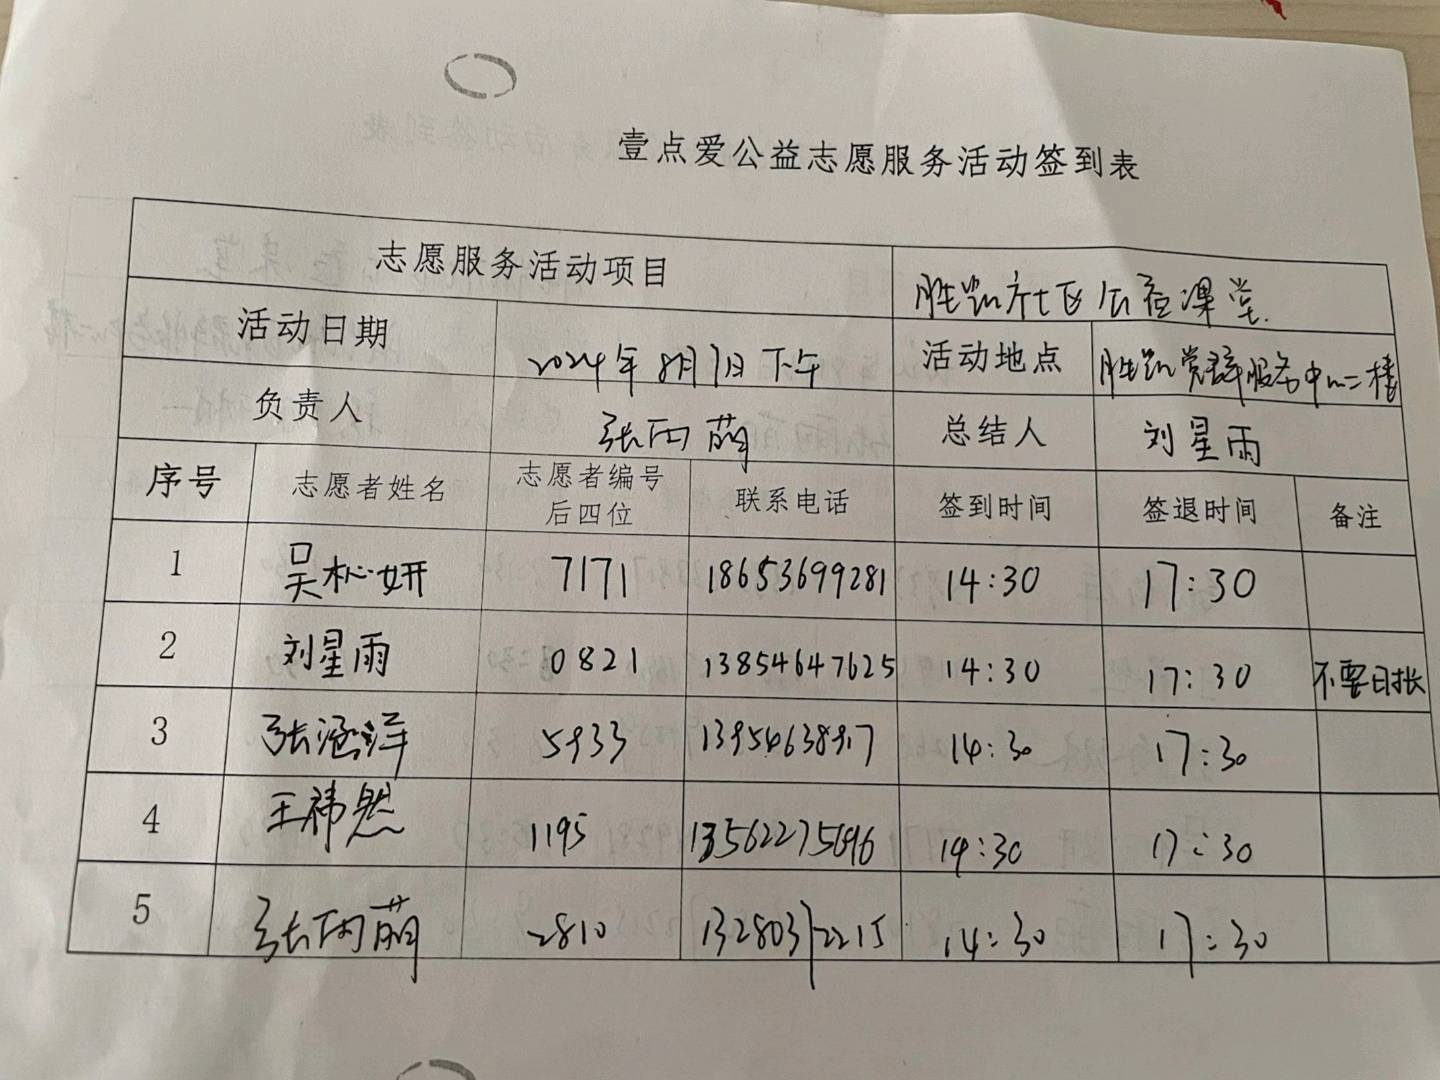 壹点爱公益志愿服务活动签到表
志愿服务活动项目 胜凯社区公益课堂
活动日期 2024年8月7日下午 活动地点 胜凯党群服务中心二楼
负责人 张雨萌 总结人 刘星雨
序号 志愿者姓名 志愿者编号后四位 联系电话 签到时间 签退时间 备注
1 吴杺妍 7171 18653699281 14:30 17:30
2 刘星雨 0821 13854647625 14:30 17:30 不要日长
3 张涵洋 5933 14:30 17:30
4 王祎然 1195 13562275696 14:30 17:30
5 张雨萌 2810 13280372215 14:30 17:30